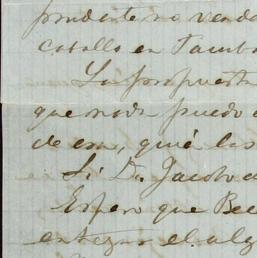 prudente no venda
caballo en Tamb
La propuesta
que nada puedo
de eso, qué las
Si Dn. Jacobo a
Espero que Bec
entregar el alg